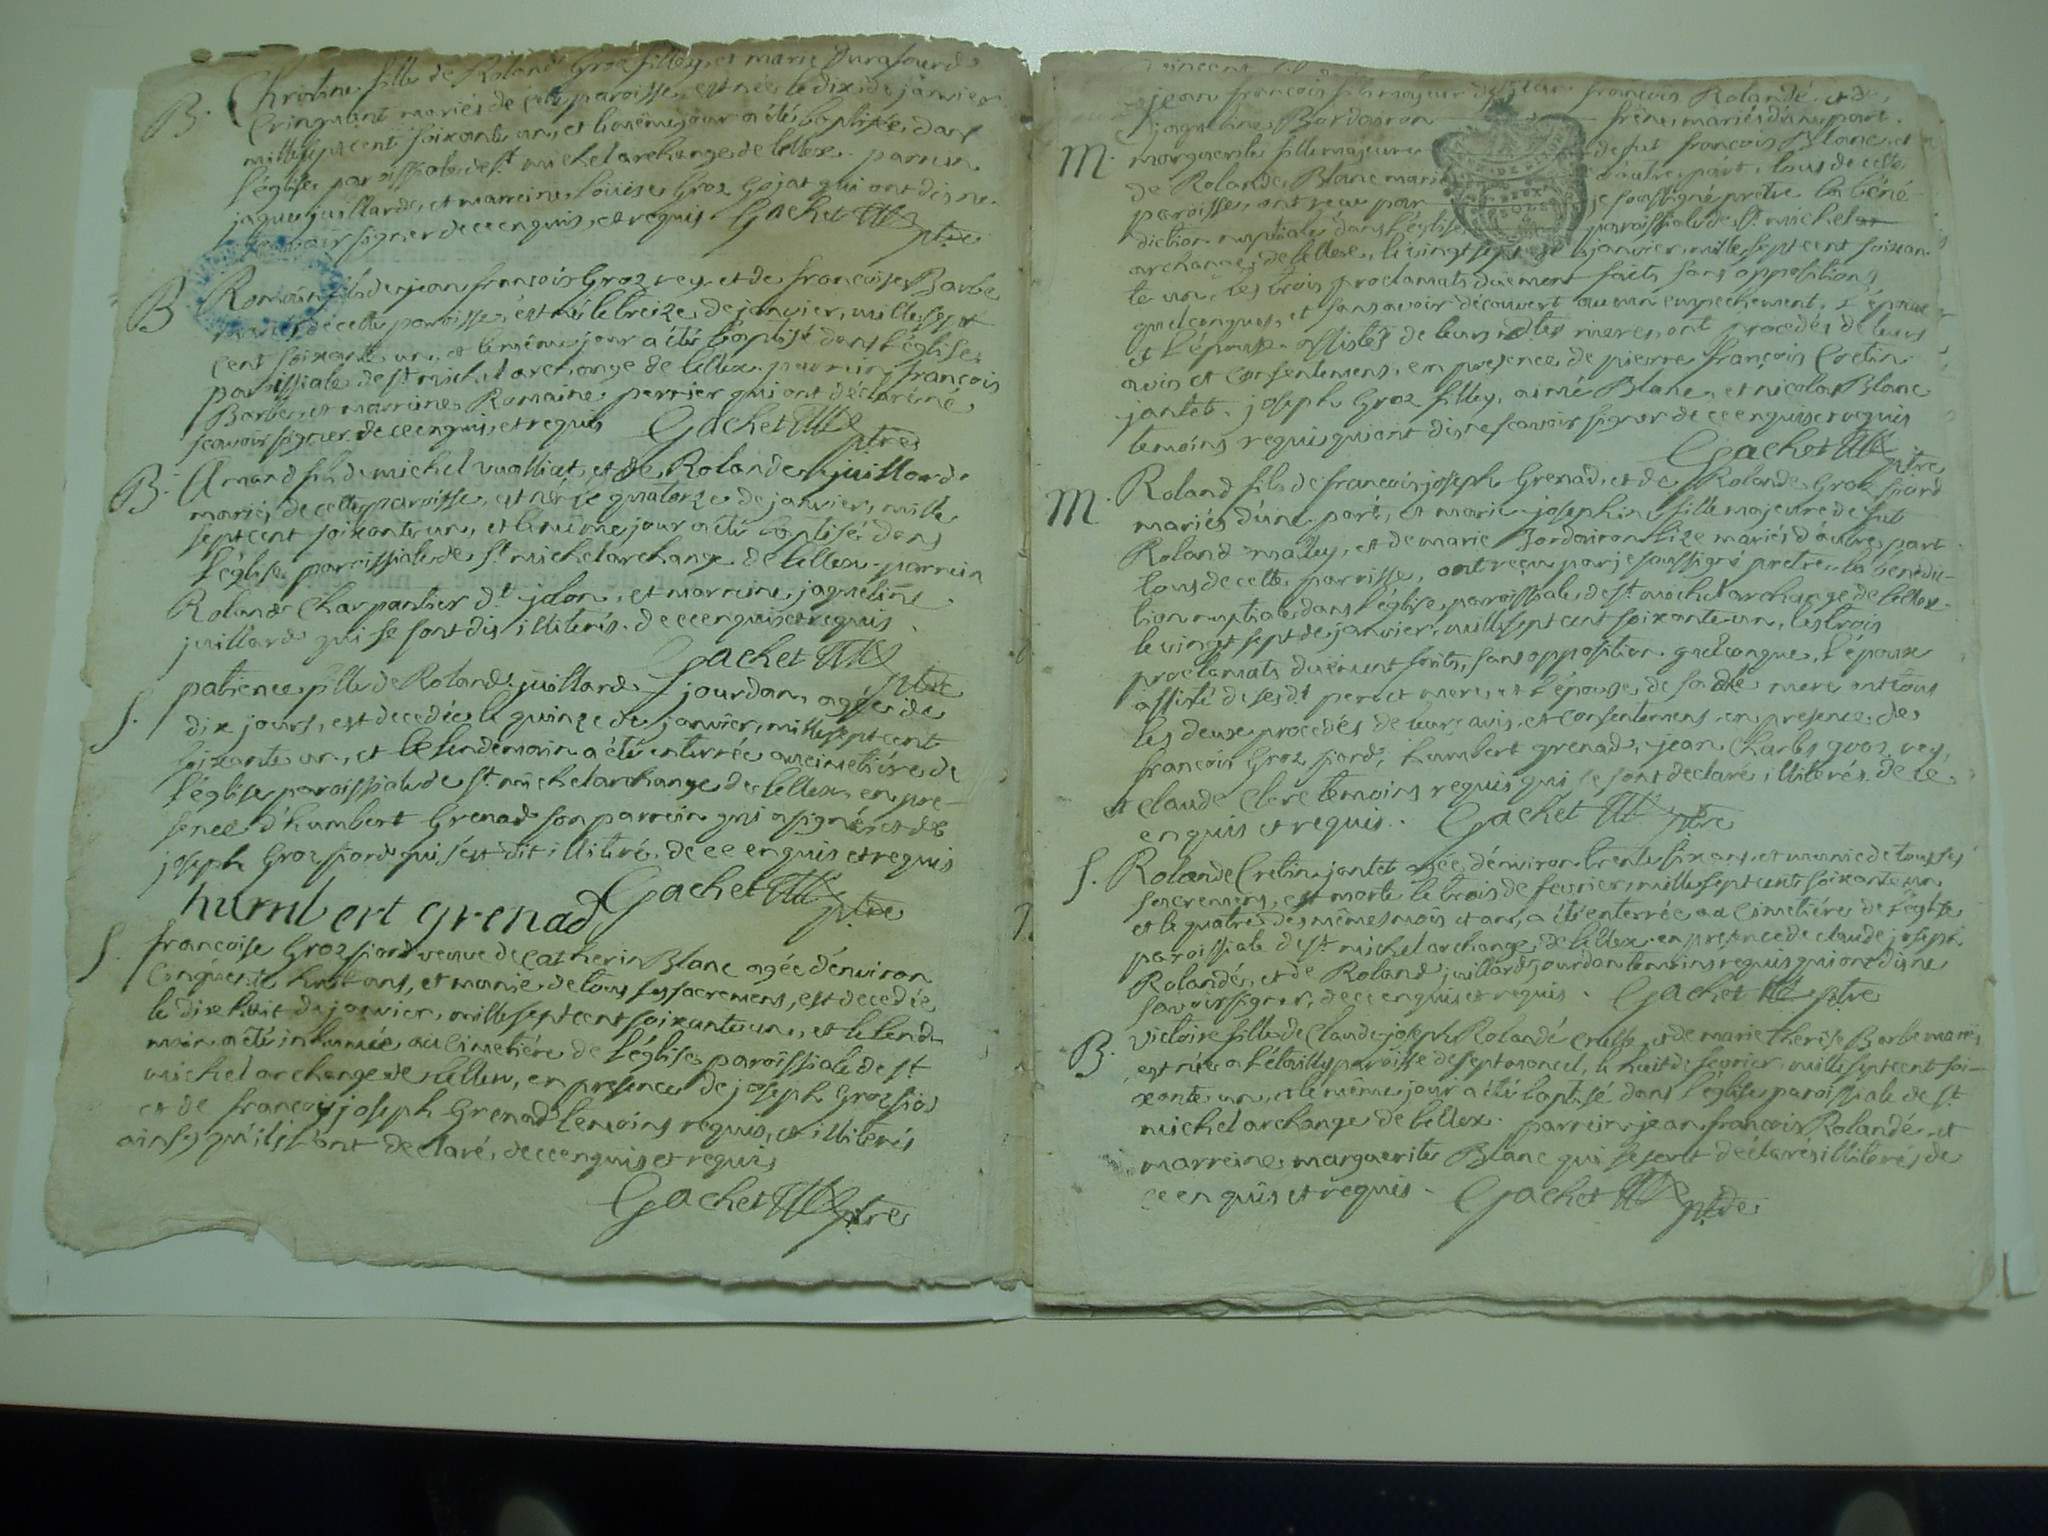 B. Christine fille de Roland Groz filley, et marie Durafourd
Cringuant mariés de cette paroisse, est née le dix de janvier
mille sept cent soixante un, et le même jour a été baptisée dans
l'église paroissiale de st michel archange de lellex. parrein
jaque juillard, et marreine loüise Groz Gojat qui ont dis ne
sçavoir signer de ce enquis, et requis Gachet ptre
B Romain fils de jean françois Groz rey, et de françoise Barbe
mariés de cette paroisse, est né le treize de janvier, mille sept
cent soixante un, et le même jour a été baptisé dans l'église
paroissiale de st michel archange de lellex. parrein françois
Barbe, et marreine Romaine perrier qui ont déclaré ne
scavoir signer de ce enquis, et requis Gachet ptre
B. Amand fils de michel vualliat, et de Rolande juillard
mariés de cette paroisse, est né le quatorze de janvier, mille
sept cent soixante un, et le même jour a été baptisé dans
l'église paroissiale de st michel archange de lellex. parrein
Roland Charpantier dt jolon, et marreine jaqueline
juillard qui se sont dis illiterés. de ce enquis et requis
Gachet ptre
S. patience fille de Roland juillard jourdan, agée de
dix jours, est decedée le quinze de janvier, mille sept cent
soixante un, et le lendemain a été enterrée au cimetiére de
l'église paroissiale de st michel archange de lellex, en pre-
sence d'humbert Grenad son parrein qui a signé et de
joseph Groz fiord qui s'est dit illiteré. de ce enquis et requis
humbert grenad Gachet ptre
S. françoise Groz fiord veuve de Catherin Blanc agée d'environ
cinquente huit ans, et munie de tous ses sacremens, est decedée
le dix huit de janvier, mille sept cent soixante un, et le lende
main a été inhumée au cimetiére de l'église paroissiale de st
michel archange de lellex, en presence de joseph Groz fiord
et de françois joseph Grenad temoins requis, et illiterés
ainsy qu'ils l'ont declaré, de ce enquis et requis
Gachet ptre
jean françois fils majeur de françois Rolandé et de
jaqueline Bordairon frene, mariés d'une part.
M. marguerite fille majeure de fut françois Blanc, et
de Rolande Blanc mariés d'autre part, tous de cette
paroisse, ont reçu par je soussigné prêtre la béné-
diction nuptiale dans l'église paroissiale de st michel ar
archange de lellex, le vingt sept de janvier, mille sept cent soixan
te un, les trois proclamats düement faits, sans opposition
quelconques, et sans avoir découvert aucun empechement, l'époux
et l'épouse assistés de leurs dtes meres, ont procedés de leurs
avis et consentemens, en presence de pierre françois Cretin
jantet, joseph Groz filley, aimé Blanc, et nicolas Blanc
temoins requis qui ont dis ne scavoir signer de ce enquis et requis
Gachet ptre
M. Roland fils de françois joseph Grenad, et de Rolande Groz fiord
mariés d'une part, et marie josephine fille majeure de fut
Roland maley, et de marie Bordairon lize mariés d'autre part
tous de cette parroisse, ont reçu par je soussigné pretre la bénédic-
tion nuptiale dans l'église paroissiale de st michel archange de lellex
le vingt sept de janvier, mille sept cent soixante un, les trois
proclamats düement faits, sans opposition quelconque, l'époux
assisté de ses dt pere et mere, et l'épouse de sa dte mere ont tous
les deux procedés de leurs avis, et consentemens, en presence de
françois Groz fiord, humbert grenad, jean Charles groz rey,
et claude Clerc temoins requis qui se sont declaré illiterés. de ce
enquis et requis. Gachet ptre
S. Rolande Cretin jantet agée d'environ trente six ans, et munie de tous ses
sacremens, est morte le trois de fevrier, mille sept cent soixante un
et le quatre des mêmes mois et an, a été enterrée au cimetiére de l'église
paroissiale de st michel archange de lellex. en presence de claude joseph
Rolandé, et de Roland juillard jourdan temoins requis qui ont dis ne
savoir signer, de ce enquis et requis. Gachet ptre
B. victoire fille de Claude joseph Rolandé et de marie therêse Barbe mariés
est née a l'étouilly paroisse de septmoncel, le huit de fevrier, mille sept cent soi-
xante un, et le même jour a été baptisé dans l'église paroissiale de st
michel archange de lellex. parrein jean françois Rolandé, et
marreine marguerite Blanc qui se sont déclarés illiterés de
ce enquis et requis. Gachet ptre